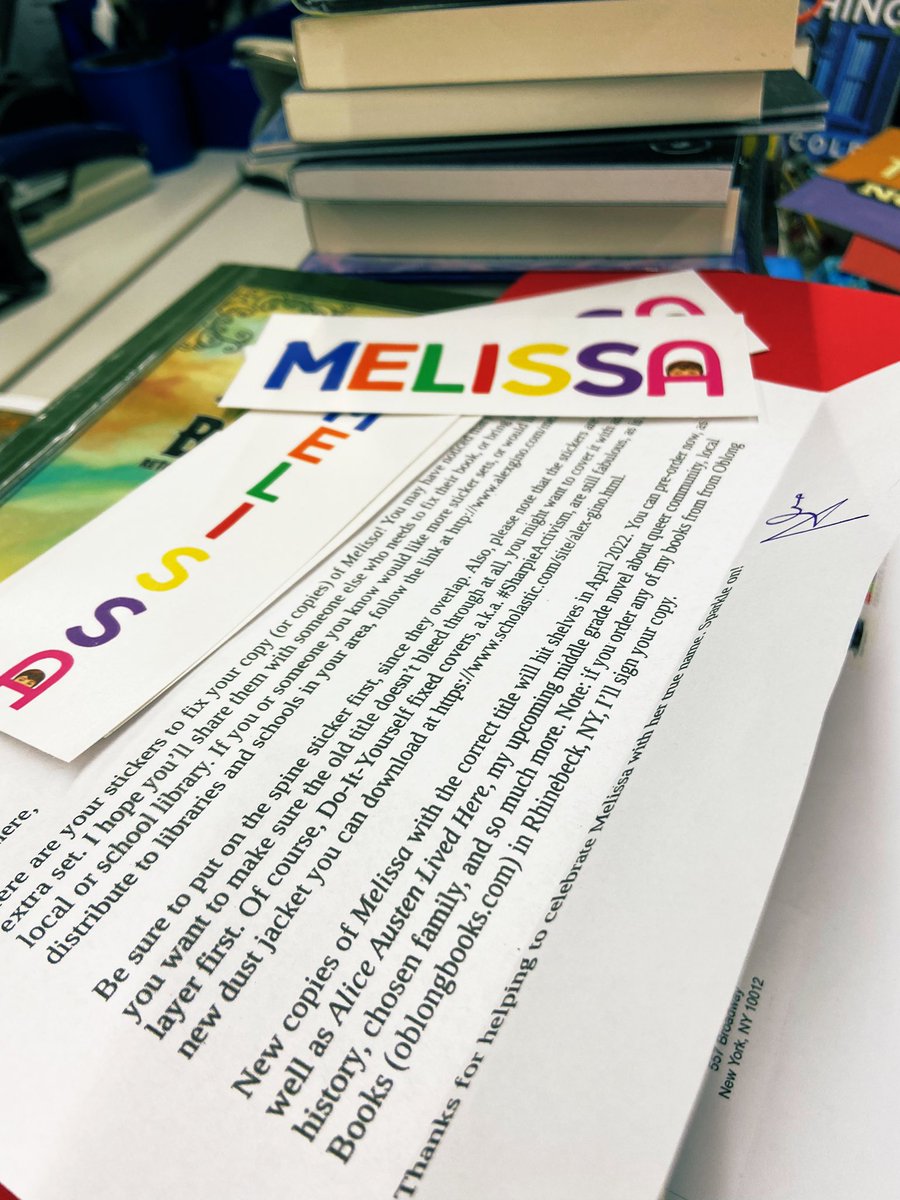 MELISSA
SA
MELISSA
here,
are your stickers to fix your copy (or copies) of Melissa! You may have noticed
extra set. I hope you'll share them with someone else who needs to fix their book, or bring
local or school library. If you or someone you know would like more sticker sets, or would
distribute to libraries and schools in your area, follow the link at http://www.alexgino.com/
Be sure to put on the spine sticker first, since they overlap. Also, please note that the stickers
you want to make sure the old title doesn't bleed through at all, you might want to cover it with
layer first. Of course, Do-It-Yourself fixed covers, a.k.a. #SharpieActivism, are still fabulous, as
new dust jacket you can download at https://www.scholastic.com/site/alex-gino.html.
New copies of Melissa with the correct title will hit shelves in April 2022. You can pre-order now, as
well as Alice Austen Lived Here, my upcoming middle grade novel about queer community, local
history, chosen family, and so much more. Note: if you order any of my books from from Oblong
Books (oblongbooks.com) in Rhinebeck, NY, I'll sign your copy.
Thanks for helping to celebrate Melissa with her true name. Sparkle on!
557 Broadway
New York, NY 10012
HING
COLE